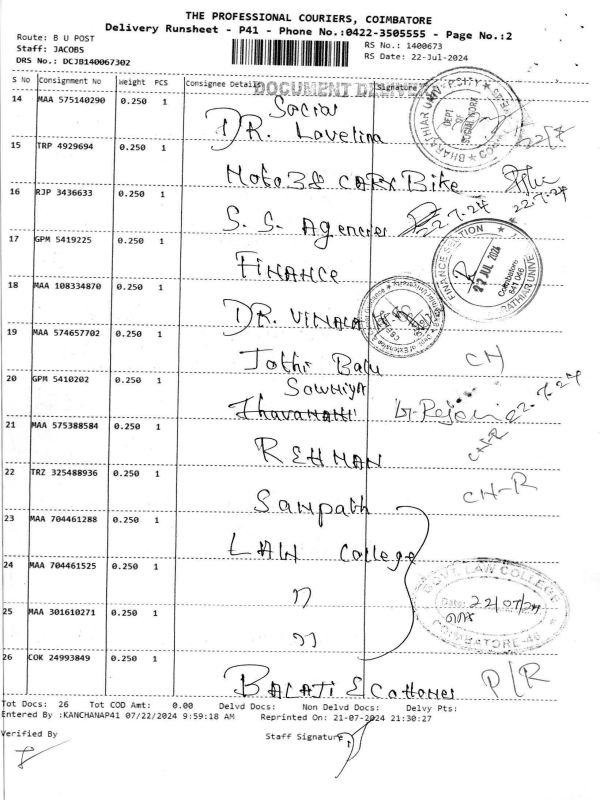 THE PROFESSIONAL COURIERS, COIMBATORE
Delivery Runsheet - P41 - Phone No.:0422-3505555 - Page No.:2
Route: B U POST
Staff: JACOBS
DRS No.: DCJB140067302
RS No.: 1400673
RS Date: 22-Jul-2024
S No Consignment No Weight PCS Consignee Detail Signature
DOCUMENT DELIVER
14 MAA 575140290 0.250 1
Social
DR. Lovelina
15 TRP 4929694 0.250 1
Moto38 CARX Bike
22.7.24
16 RJP 3436633 0.250 1
S. S. Agencies 22.7.24
17 GPM 5419225 0.250 1
FINANCE
FINANCE SECTION
22 JUL 2024
Coimbatore
641 046
18 MAA 108334870 0.250 1
DR. VIMALA
19 MAA 574657702 0.250 1
Jothi Babu CH
20 GPM 5410202 0.250 1
Sowmiya
22-7-24
21 MAA 575388584 0.250 1
REHMAN CH-R
22 TRZ 325488936 0.250 1
Sampath CH-R
23 MAA 704461288 0.250 1
LAW College
24 MAA 704461525 0.250 1
"
GOVT. LAW COLLEGE
Date: 22/07/24
COIMBATORE-46
25 MAA 301610271 0.250 1
"
26 COK 24993849 0.250 1
BALAJI & Cottones P/R
Tot Docs: 26 Tot COD Amt: 0.00 Delvd Docs: Non Delvd Docs: Delvy Pts:
Entered By :KANCHANAP41 07/22/2024 9:59:18 AM Reprinted On: 21-07-2024 21:30:27
Verified By
Staff Signature